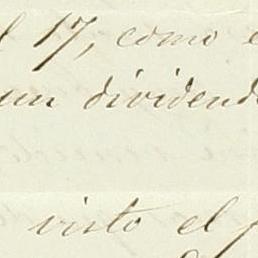 17, como
un dividend
visto el